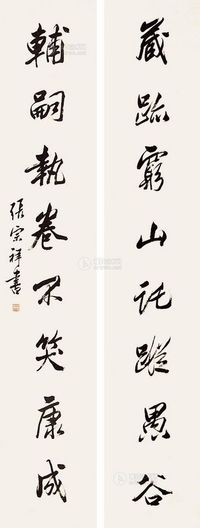 藏跡窮山託蹤愚谷
輔嗣執卷不笑康成
張宗祥書